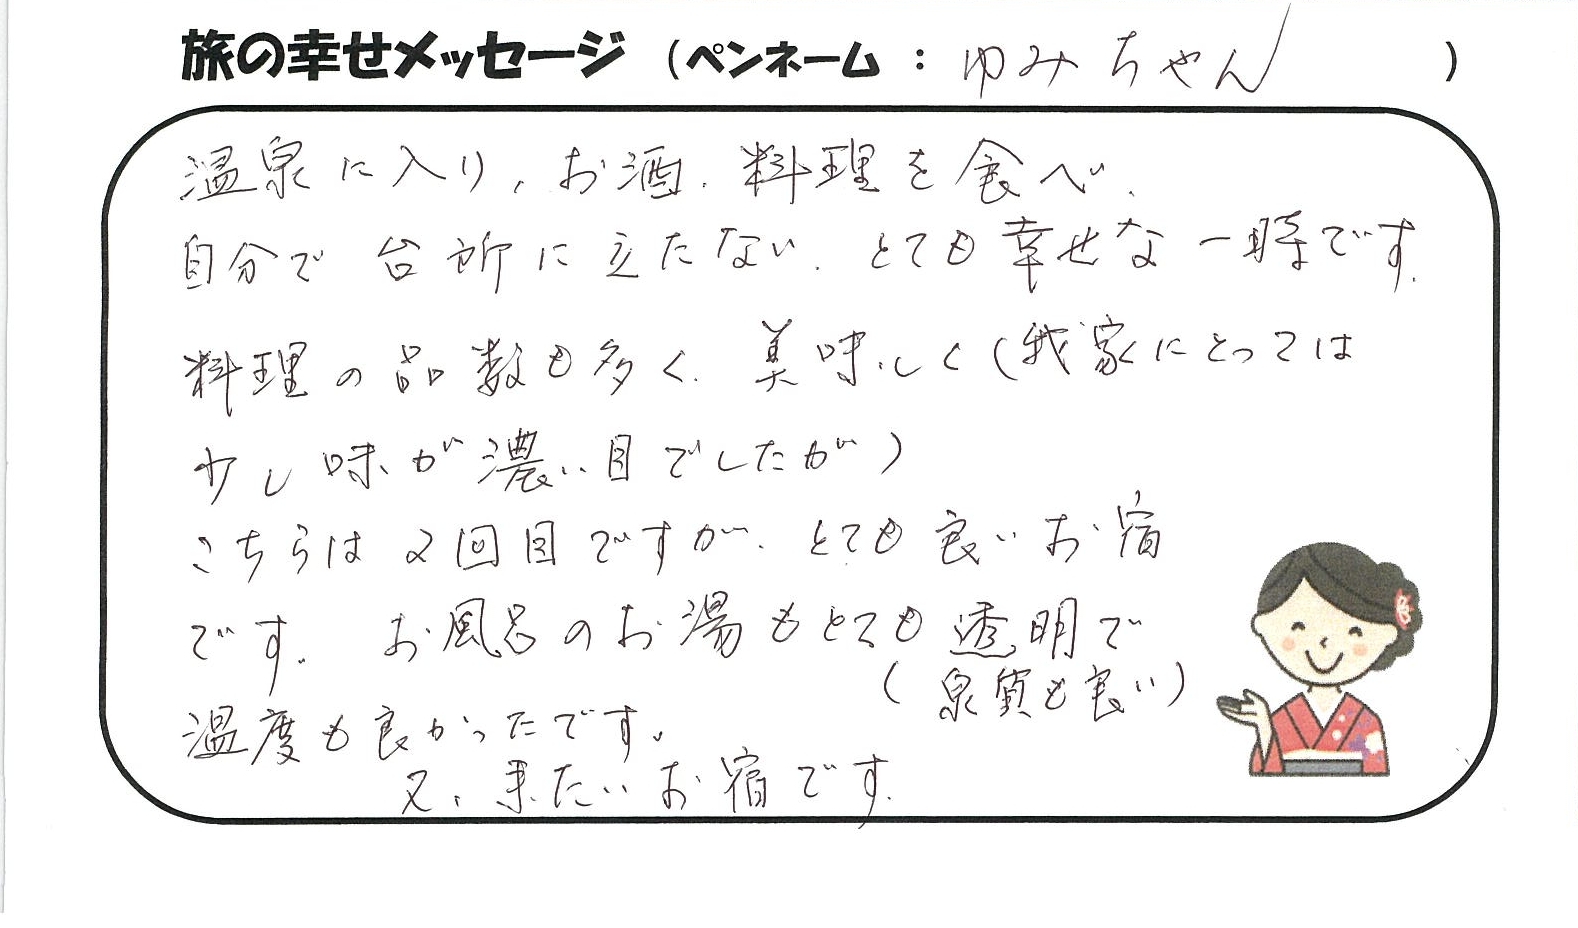 旅の幸せメッセージ （ペンネーム：ゆみちゃん）
温泉に入り、お酒、料理を食べ、
自分で台所に立たない、とても幸せな一時です。
料理の品数も多く、美味しく（我家にとっては
少し味が濃い目でしたが）
こちらは2回目ですが、とても良いお宿
です。 お風呂のお湯もとても透明で
（泉質も良い）
温度も良かったです。
又、来たいお宿です。